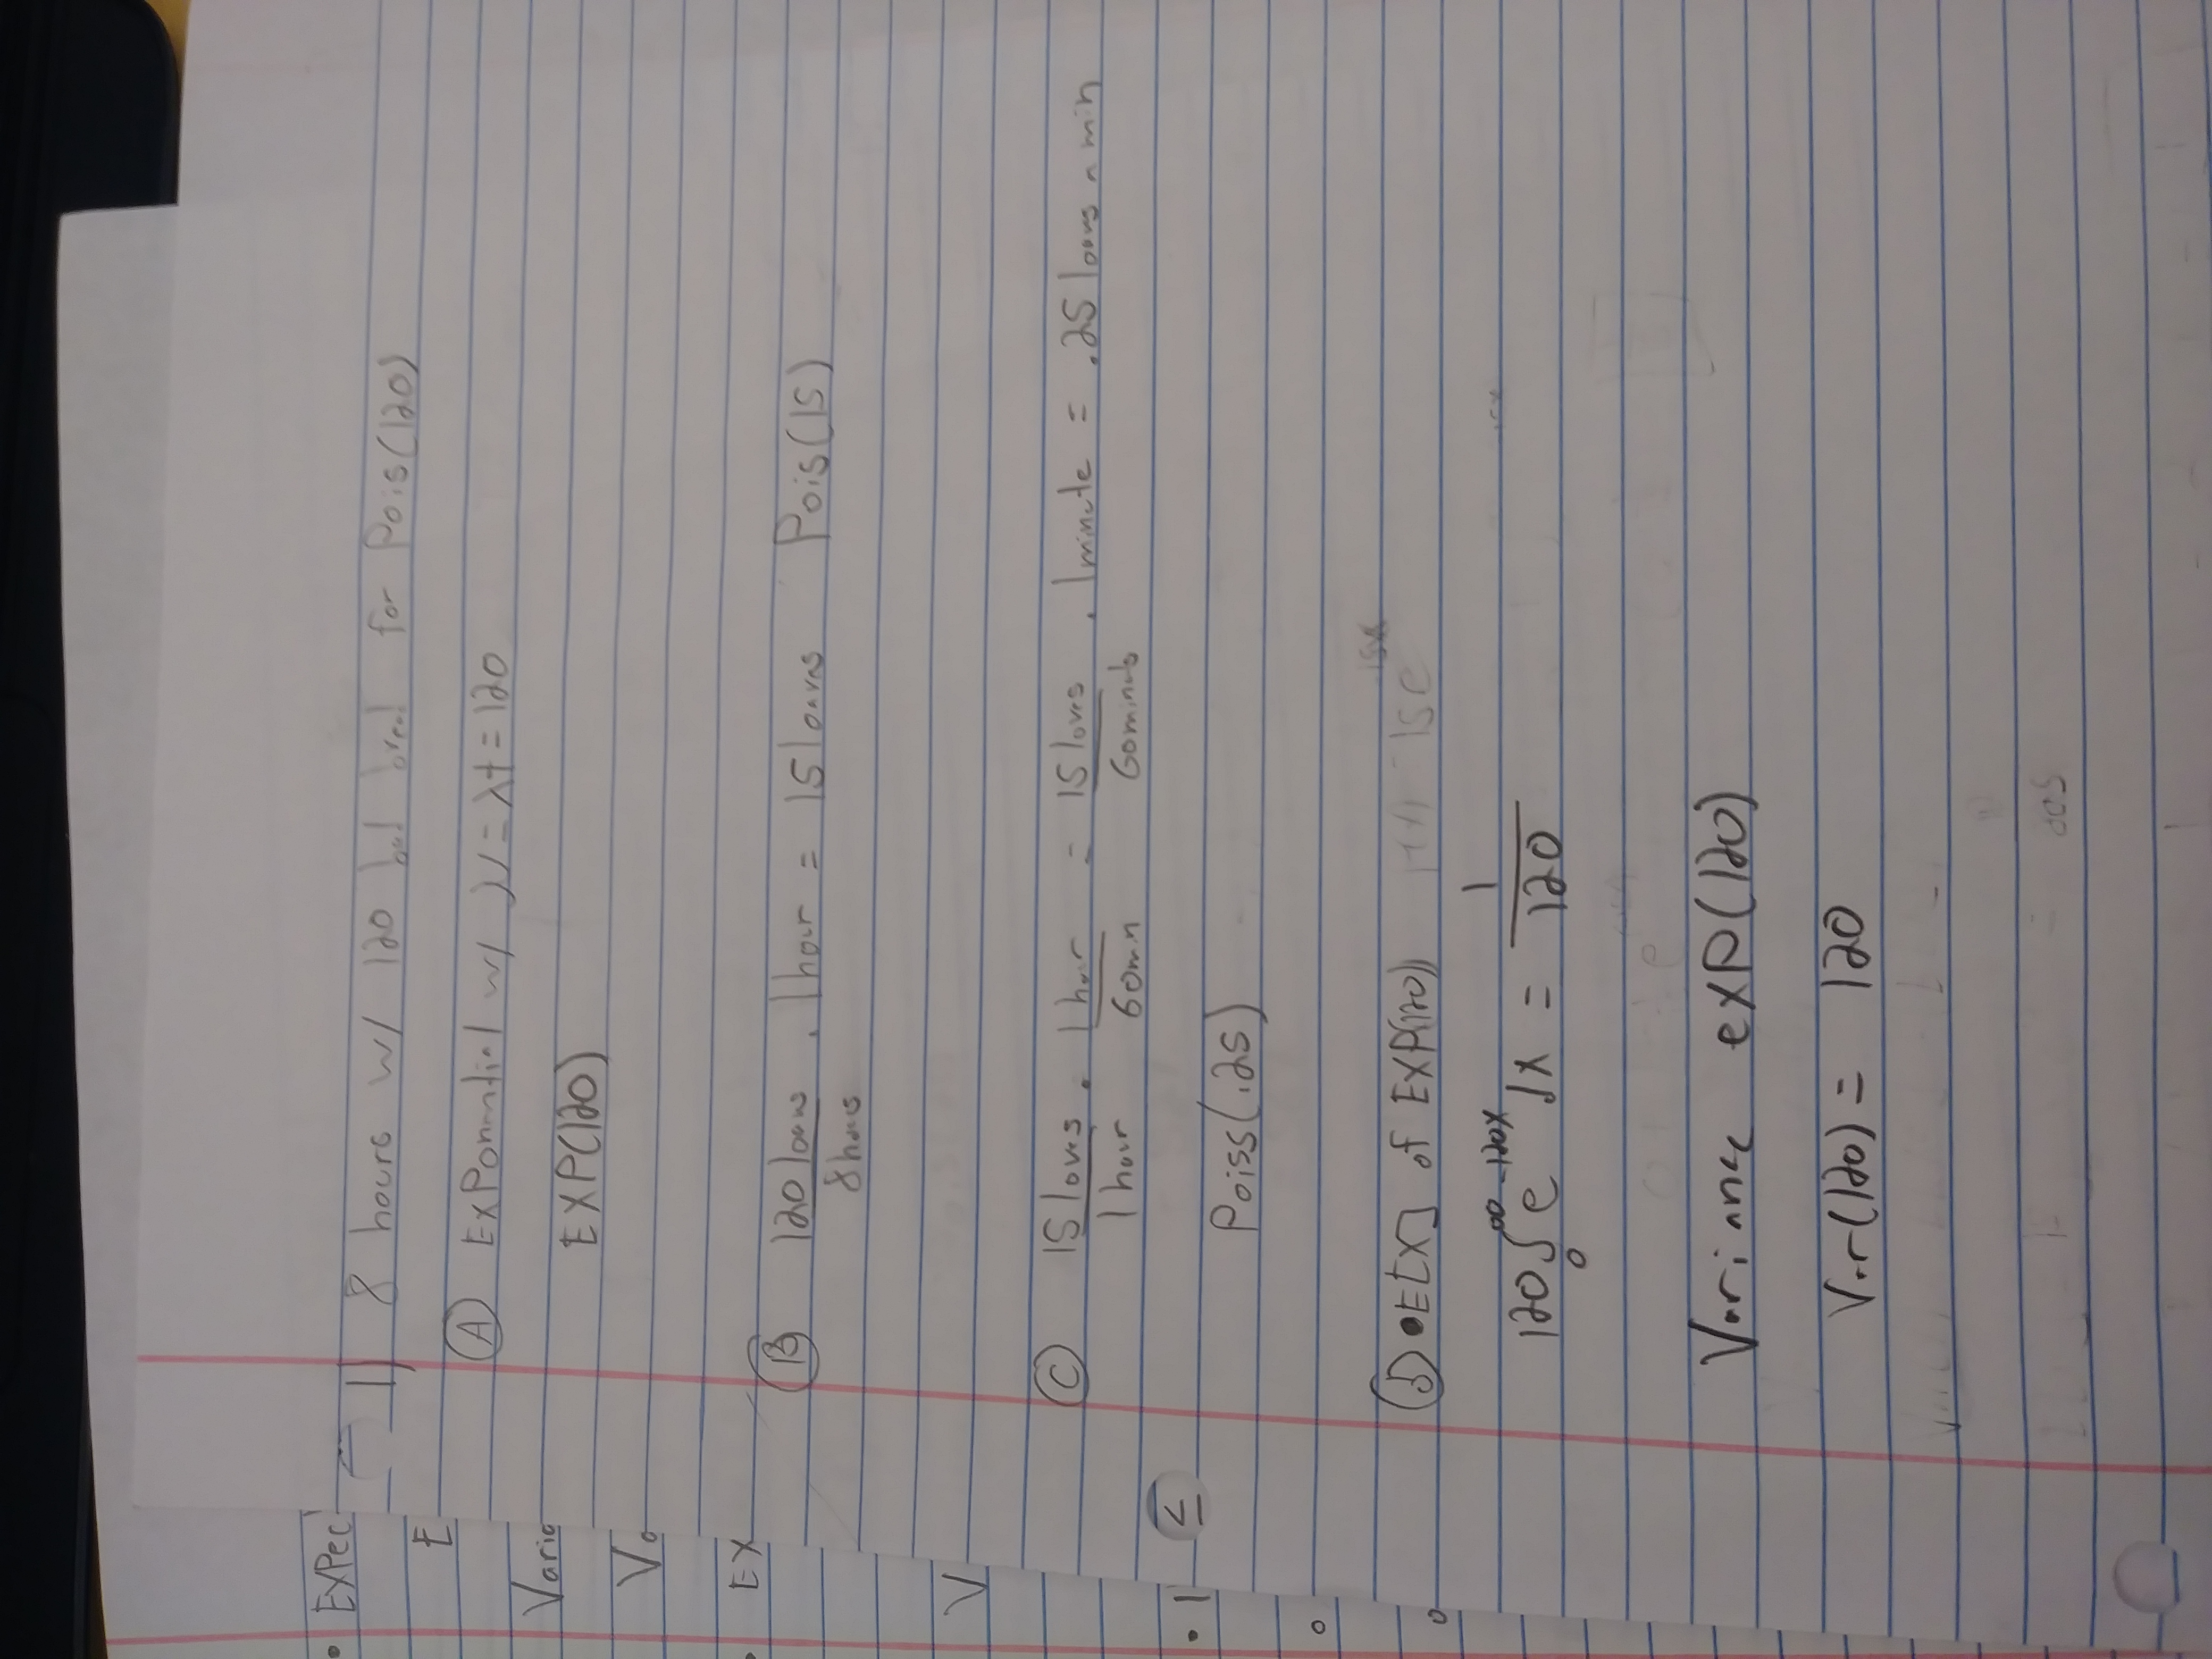 • EXPec
E
Varia
Va
EX
V
• 1
1) 8 hours w/ 120 bad bread for Pois(120)
(A) Exponential w/ μ = λt = 120
EXP(120)
(B) 120 loaves / 8 hours · 1 hour = 15 loaves Pois(15)
(C) 15 loves / 1 hour · 1 hour / 60 min = 15 loves / 60 minuts · 1 minute = .25 loaves a min
≤
Poiss(.25)
(D) • E[X] of EXP(120)
120 ∫₀^∞ e^-120x dx = 1/120
Variance exp(120)
Var(120) = 120